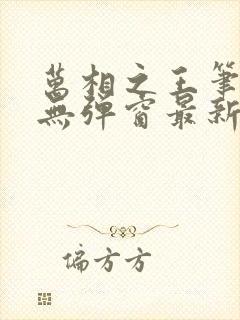 萬相之王筆
無彈窗最新
偏方方